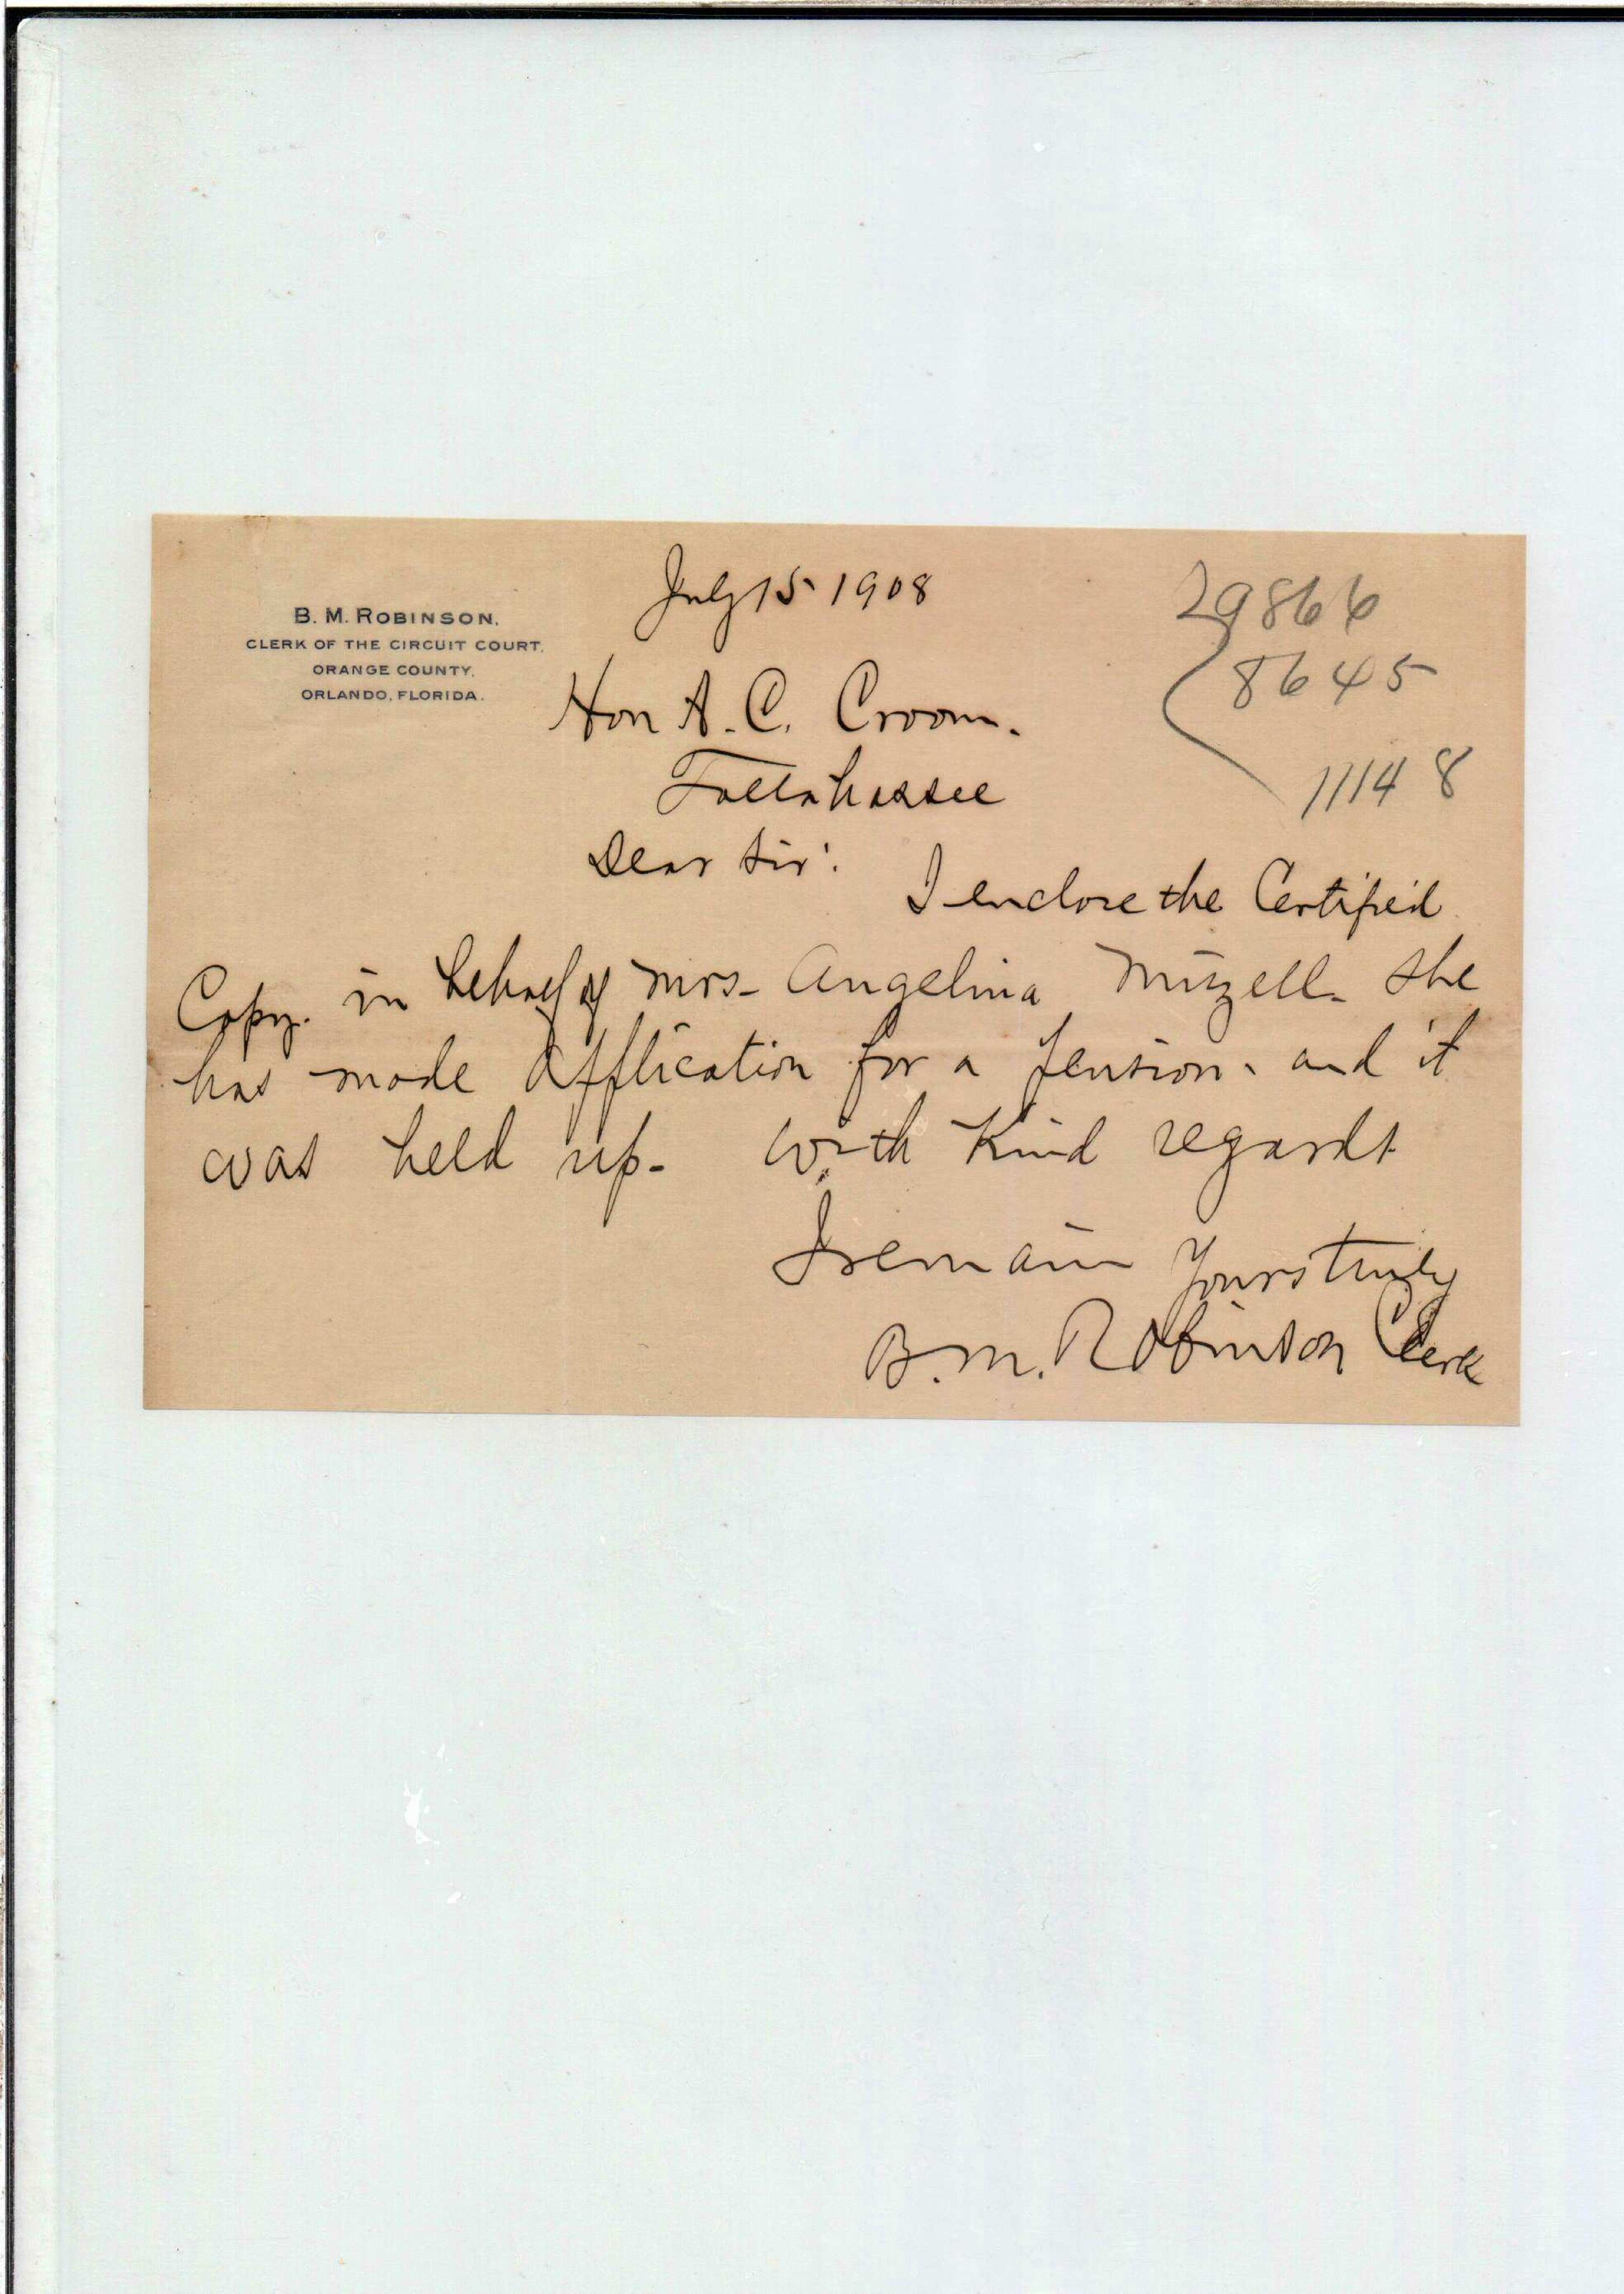 B. M. ROBINSON,
CLERK OF THE CIRCUIT COURT,
ORANGE COUNTY,
ORLANDO, FLORIDA.
July 15 1908
29866
8645
11148
Hon A. C. Croom.
Tallahassee
Dear Sir:
I enclose the Certified
Copy. in behalf of Mrs- Angelina Mizell- She
has made application for a pension. and it
was held up- With Kind regards
I remain Yours truly
B. M. Robinson Clerk